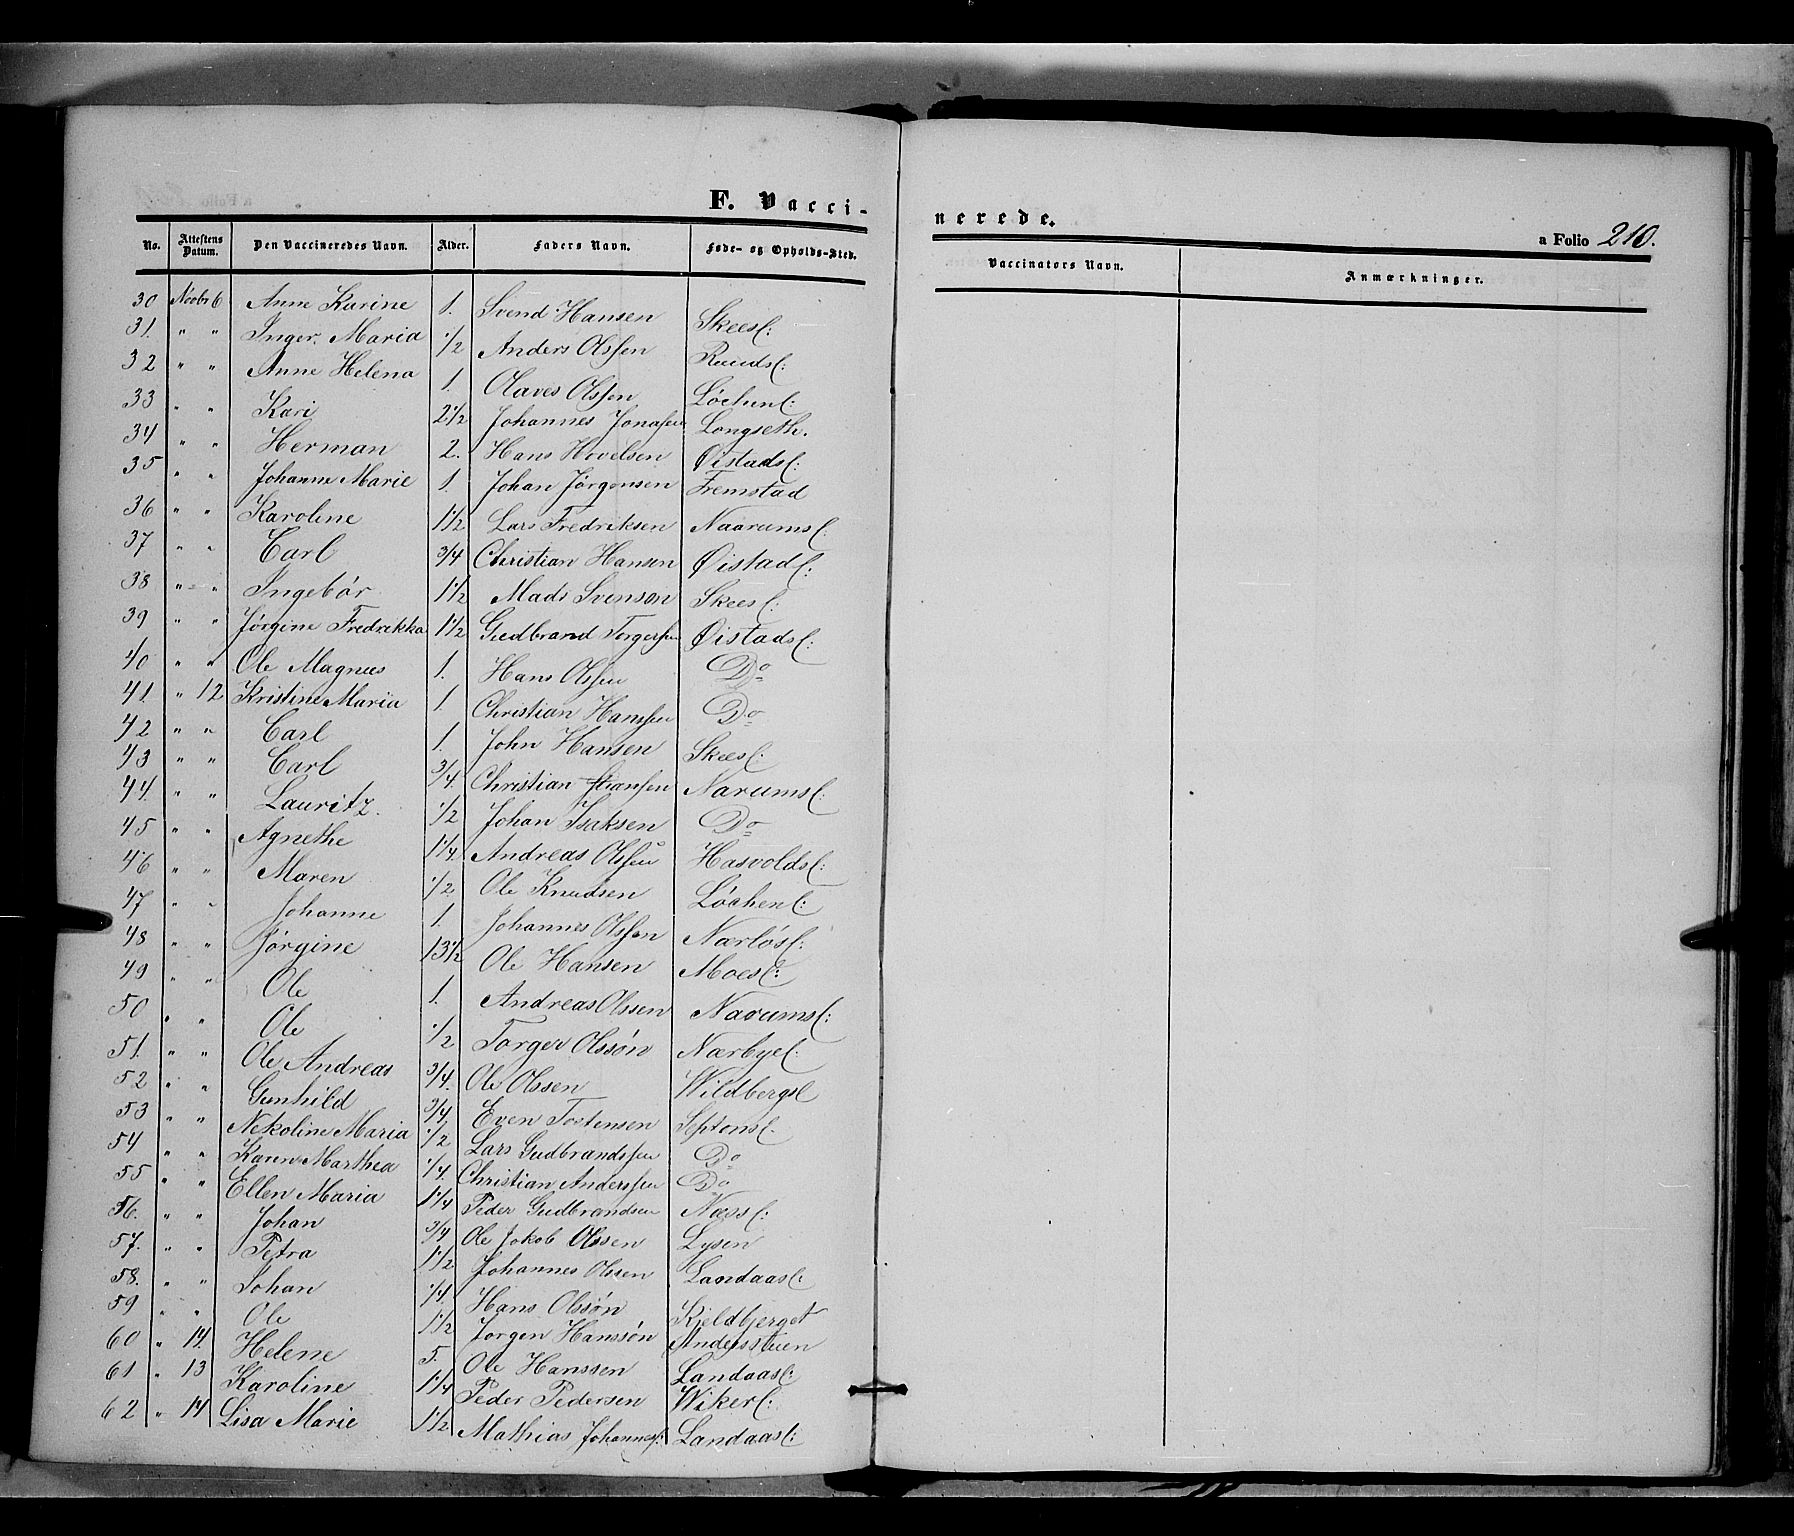 F. Vacci-
No. Attestens Datum. Den Vaccineredes Navn. Alder. Faders Navn. Føde- og Opholds-Sted.
30 Novbr 6 Anne Karine 1. Svend Hansen Skeesl:
31. " " Inger Maria 1/2 Anders Olssen Ruudsl:
32 " " Anne Helena 1. Olaves Olssen Løchenl:
33 " " Kari 2 1/2 Johannes Jonassen Longseth.
34 " " Herman 2. Hans Hovelsen Øistadsl:
35 " " Johanne Marie 1. Johan Jørgensen Fremstad
36 " " Karoline 1 1/2 Lars Fredriksen Naarumsl:
37 " " Carl 3/4 Christian Hansen Øistadl:
38 " " Ingebør 1 1/2 Mads Svenson Skeesl:
39 " " Jørgine Fredrikka 1 1/2 Gudbrand Torgersen Øistadsl:
40 " " Ole Magnus 1. Hans Olssen Do
41. " 12 Kristine Maria 1. Christian Hanssen Do
42 " " Carl 1. John Hansen Skeesl:
43 " " Carl 3/4. Christian Hanssen Narumsl:
44. " " Lauritz. 1/2 Johan Isaksen Do
45 " " Agnethe 1 1/4 Andreas Olssen Hasvoldsl:
46 " " Maren 1/2 Ole Knudsen Løchenl:
47 " " Johanne 1. Johannes Olssen Nærløsl:
48 " " Jørgine 13 1/2 Ole Hansen Moesl:
49 " " Ole 1. Andreas Olssen Narumsl:
50 " " Ole 1/2 Torger Olssøn Nærbyel:
51. " " Ole Andreas 3/4. Ole Olssen Wildbergsl
52 " " Gunhild 3/4 Even Tostensen Septonsl.
53 " " Nekoline Maria 1/2 Lars Gudbrandssen Do
54 " " Karen Marthea 1/4. Christian Anderssen Do
55 " " Ellen Maria 1 1/4 Peder Gudbrandsen Næssl:
56. " " Johan 3/4 Ole Jokob Olssen Lysen
57. " " Petra 1 1/2 Johannes Olssen Landaasl:
58. " " Johan 1/4. Hans Olssøn Kjeldbjerget
59 " " Ole 1 1/2 Jorgen Hanssøn Andersstuen
60 " 14. Helene 5. Ole Hanssen Landaasl:
61 " 13 Karoline 1 1/4 Peder Pedersen Wikerl:
62 " 14 Lisa Marie 1 1/2 Mathias Johannesl: Landaasl:
nerede.
a Folio 210.
Vaccinators Navn. Anmærkninger.